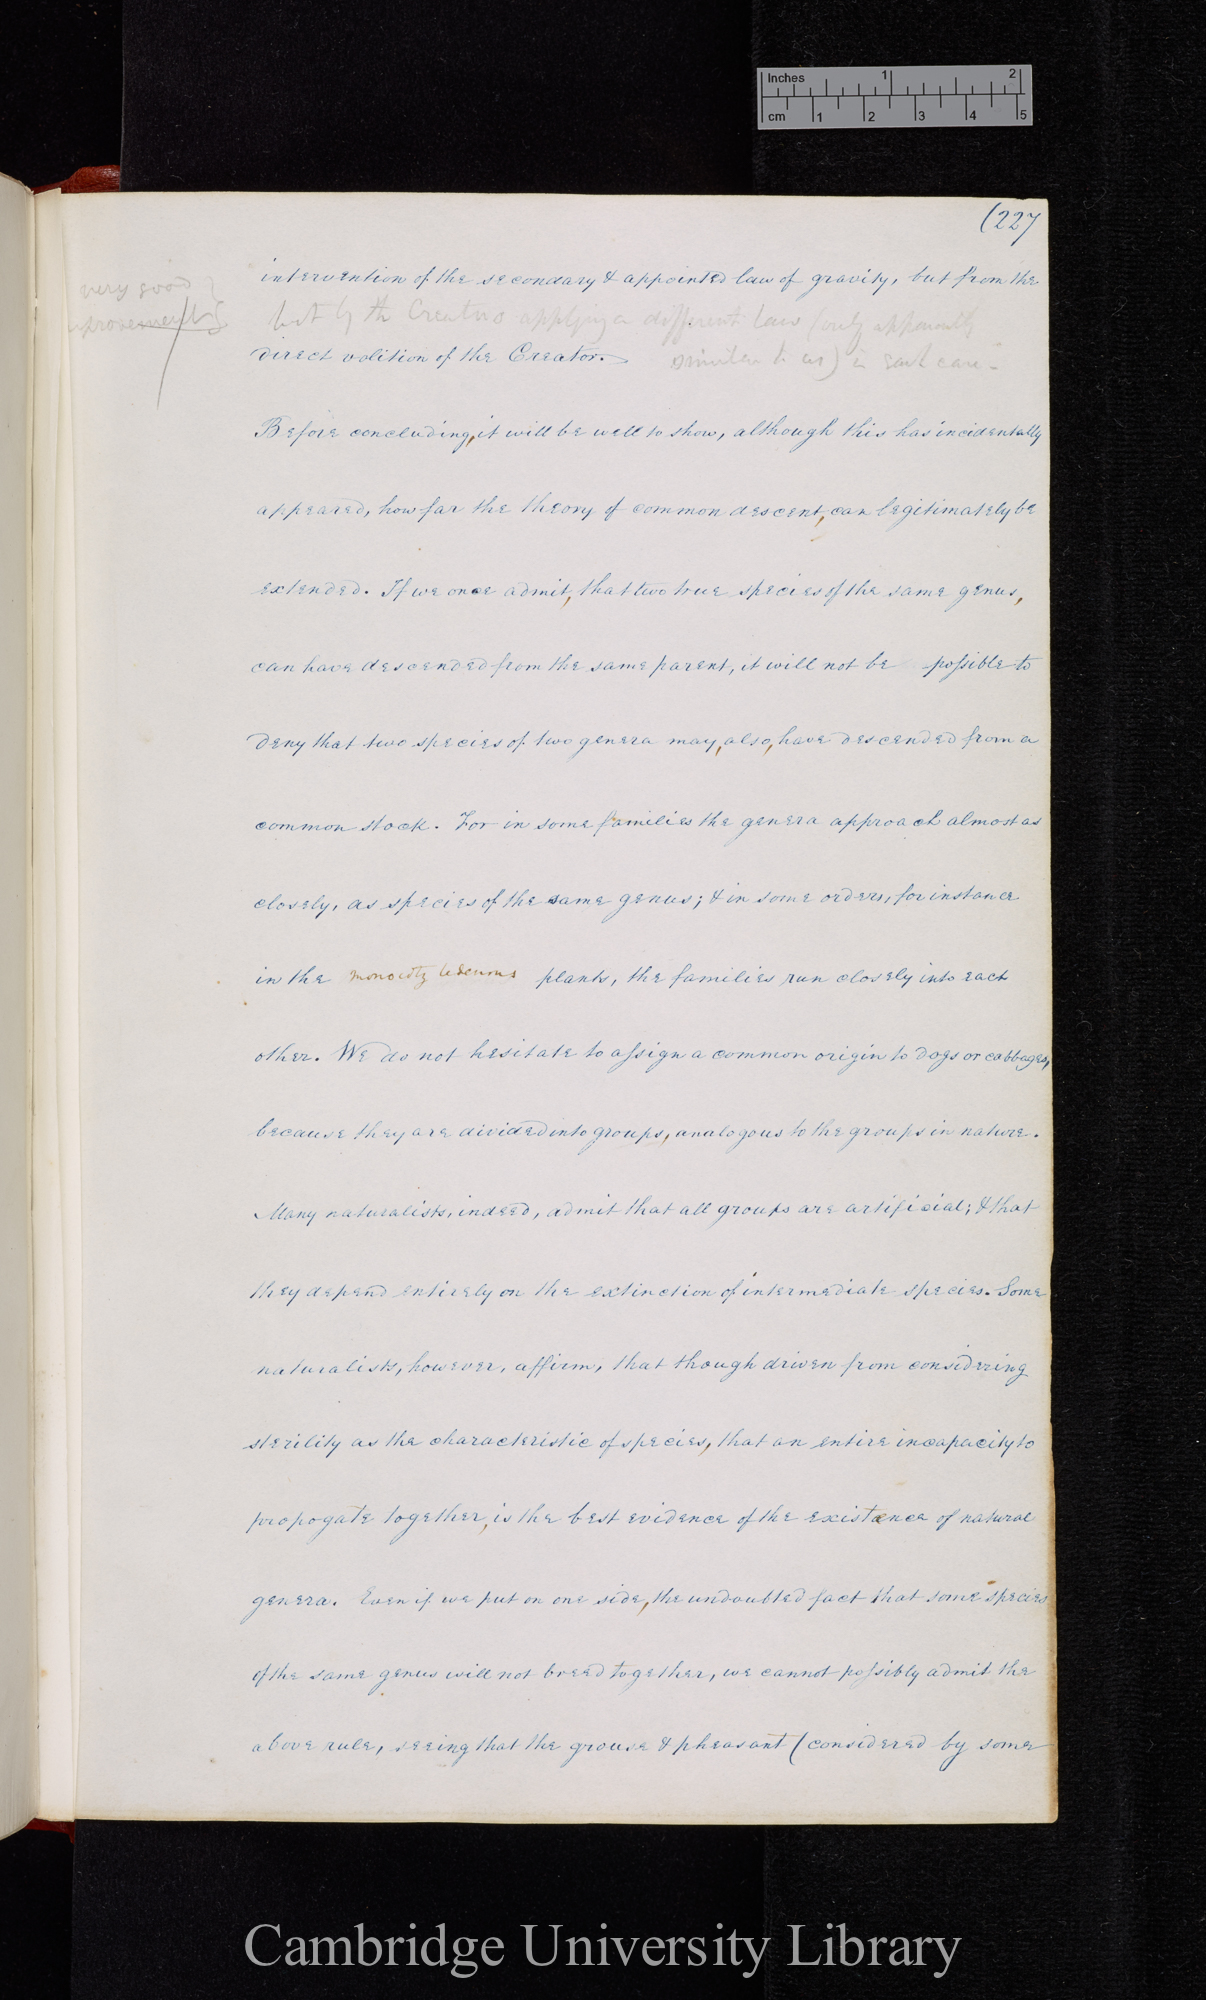 Inches 1 2
cm 1 2 3 4 5
(227
intervention of the secondary & appointed law of gravity, but from the
very good
improvement
but by the Creator's applying a different law (only apparently
similar to us) in each case"
direct volition of the Creator.
Before concluding, it will be well to show, although this has incidentally
appeared, how far the theory of common descent, can legitimately be
extended. If we once admit, that two true species of the same genus,
can have descended from the same parent, it will not be possible to
deny that two species of two genera may, also, have descended from a
common stock. For in some families the genera approach almost as
closely, as species of the same genus; & in some orders, for instance
in the monocotyledenous plants, the families run closely into each
other. We do not hesitate to assign a common origin to dogs or cabbages,
because they are divided into groups, analogous to the groups in nature.
Many naturalists, indeed, admit that all groups are artificial; & that
they depend entirely on the extinction of intermediate species. Some
naturalists, however, affirm, that though driven from considering
sterility as the characteristic of species, that an entire incapacity to
propogate together, is the best evidence of the existence of natural
genera. Even if we put on one side, the undoubted fact that some species
of the same genus will not breed together, we cannot possibly admit the
above rule, seeing that the grouse & pheasant (considered by some
Cambridge University Library